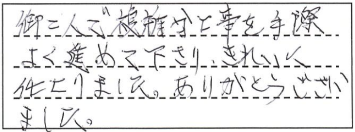 御三人で複雑な工事を手際
よく進めて下さり、きれいに
仕上りました。ありがとうござい
ました。